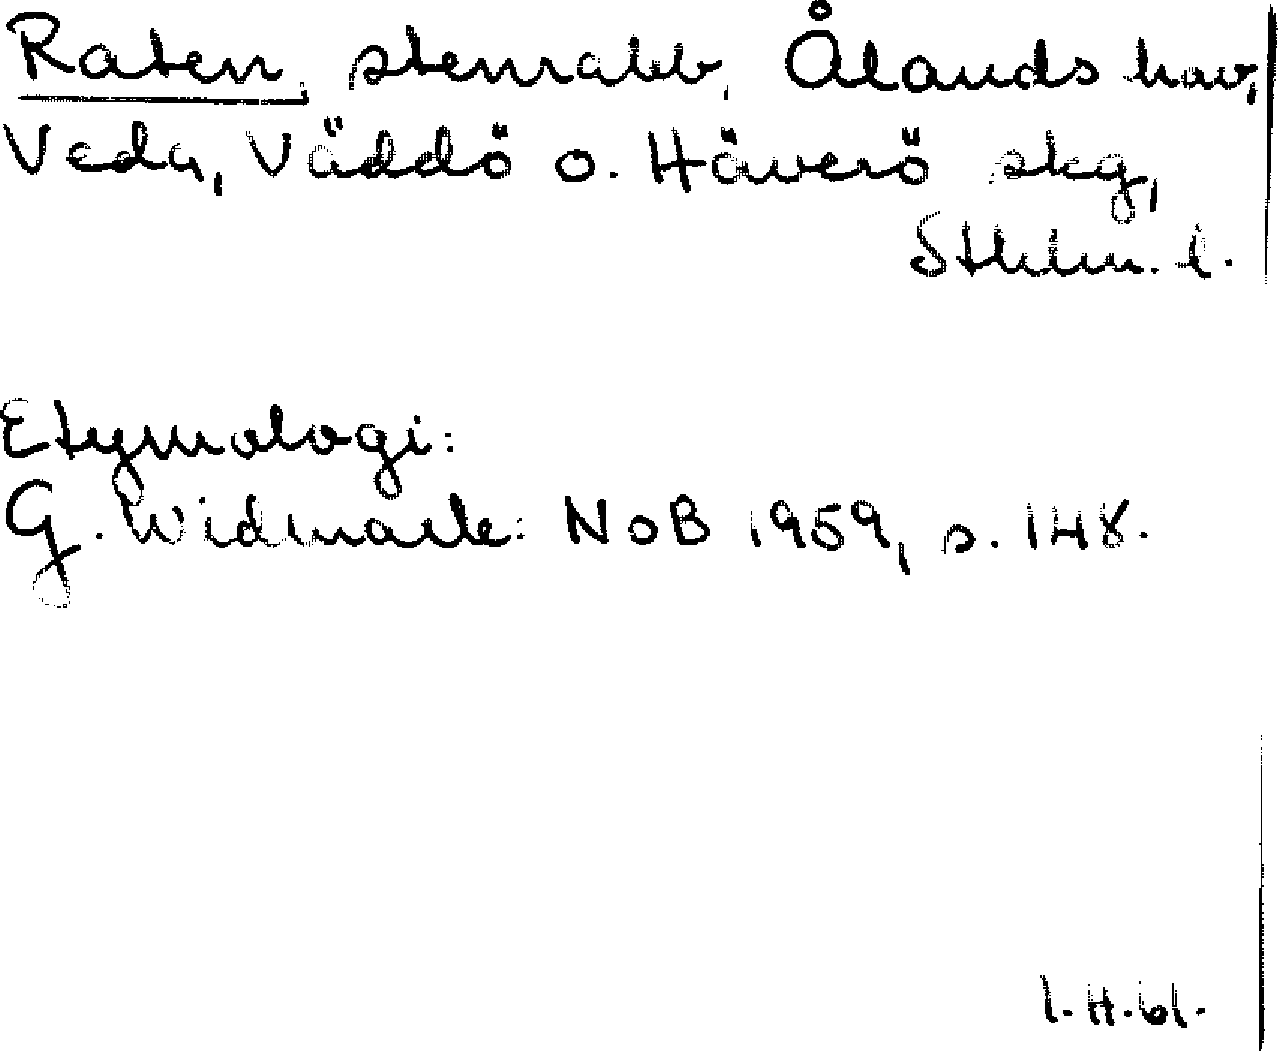 Raten, stenrabb, Ålands hav,
Veda, Väddö o. Häverö skg,
Sthlm. l.
Etymologi:
G. Widmark: NoB 1959, s. 148.
I.H.61.